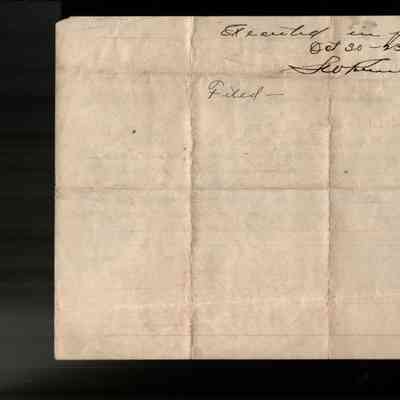 Executed in
Oct 30-23
Filed —